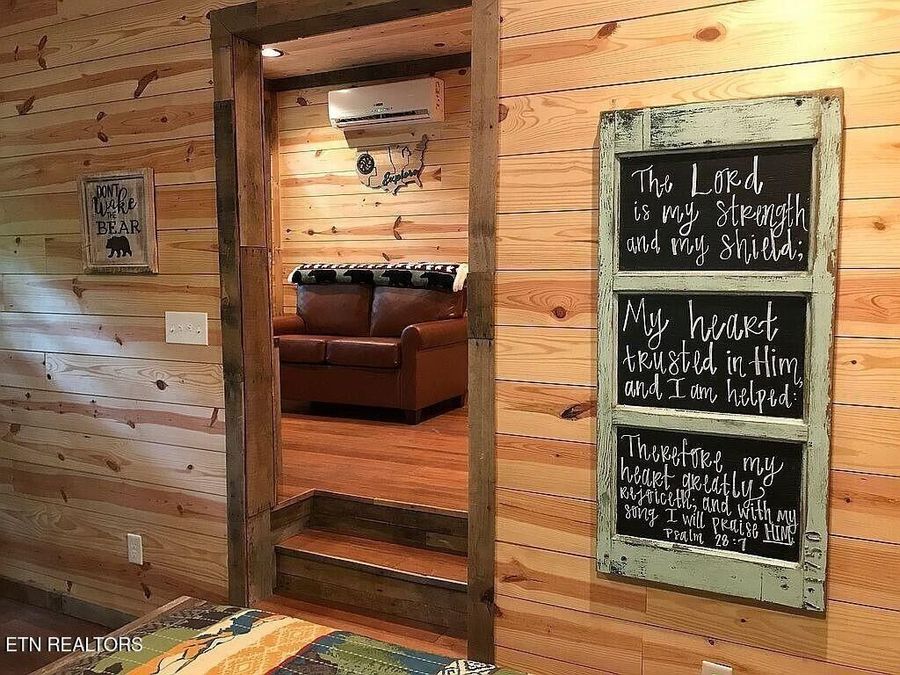 DON'T
Wake
THE
BEAR
Explore
The Lord
is my Strength
and my shield;
My heart
trusted in Him,
and I am helped:
Therefore my
heart greatly
rejoiceth; and with my
song I will praise HIM.
Psalm 28:7
1730
ETN REALTORS